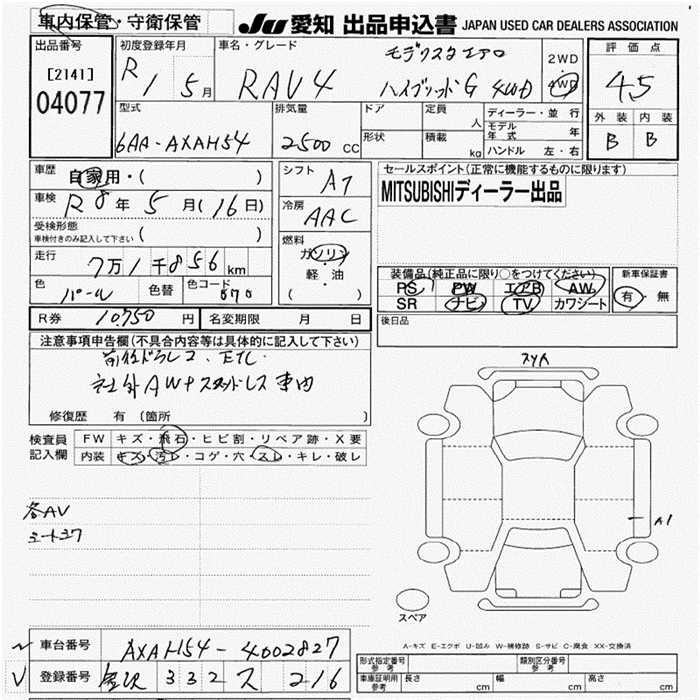 車内保管・守衛保管
JU 愛知 出品申込書 JAPAN USED CAR DEALERS ASSOCIATION
出品番号
[2141]
04077
初度登録年月
R 1 5月
車名・グレード
RAV4
モデリスタエアロ
ハイブリッドG 4WD
2WD
4WD
評価点
4.5
外装 内装
B B
型式
6AA-AXAH54
排気量
2500 CC
ドア
形状
定員 人
積載 kg
ディーラー・並行
モデル年式 年
ハンドル 左・右
車歴
自家用・( )
車検
R8年5月(16日)
受検形態
車検付きのみ記入して下さい ( )
走行
7万1千856km
色
パール
色替
色コード
070
シフト
AT
冷房
AAC
燃料
ガソリン
軽・油
( ・ )
セールスポイント(正常に機能するものに限ります)
MITSUBISHIディーラー出品
装備品(純正品に限り○をつけてください)
PS PW エアB AW
SR ナビ TV カワシート
新車保証書
有・無
後日品
R券 10,750円
名変期限 月 日
注意事項申告欄(不具合内容等は具体的に記入して下さい)
前後ドラレコ、ETC
社外AW+スタッドレス 車内
修復歴 有 (箇所 )
検査員
記入欄
FW キズ・飛石・ヒビ割・リペア跡・X要
内装 キズ・汚レ・コゲ・穴・スレ・キレ・破レ
各AV
スリA
A1
スペア
A-キズ E-エクボ U-凹み W-補修跡 S-サビ C-腐食 XX-交換済
車台番号 AXAH54-4002827
登録番号 金沢 332 ス 216
形式指定番号
参考
類別区分番号
参考
車庫証明用
参考
長さ cm
幅 cm
高さ cm